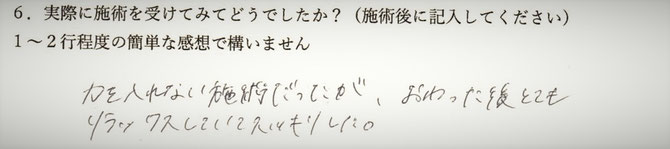 6．実際に施術を受けてみてどうでしたか？（施術後に記入してください）
1～2行程度の簡単な感想で構いません
力を入れない施術だったが、おわった後とても
リラックスしていて